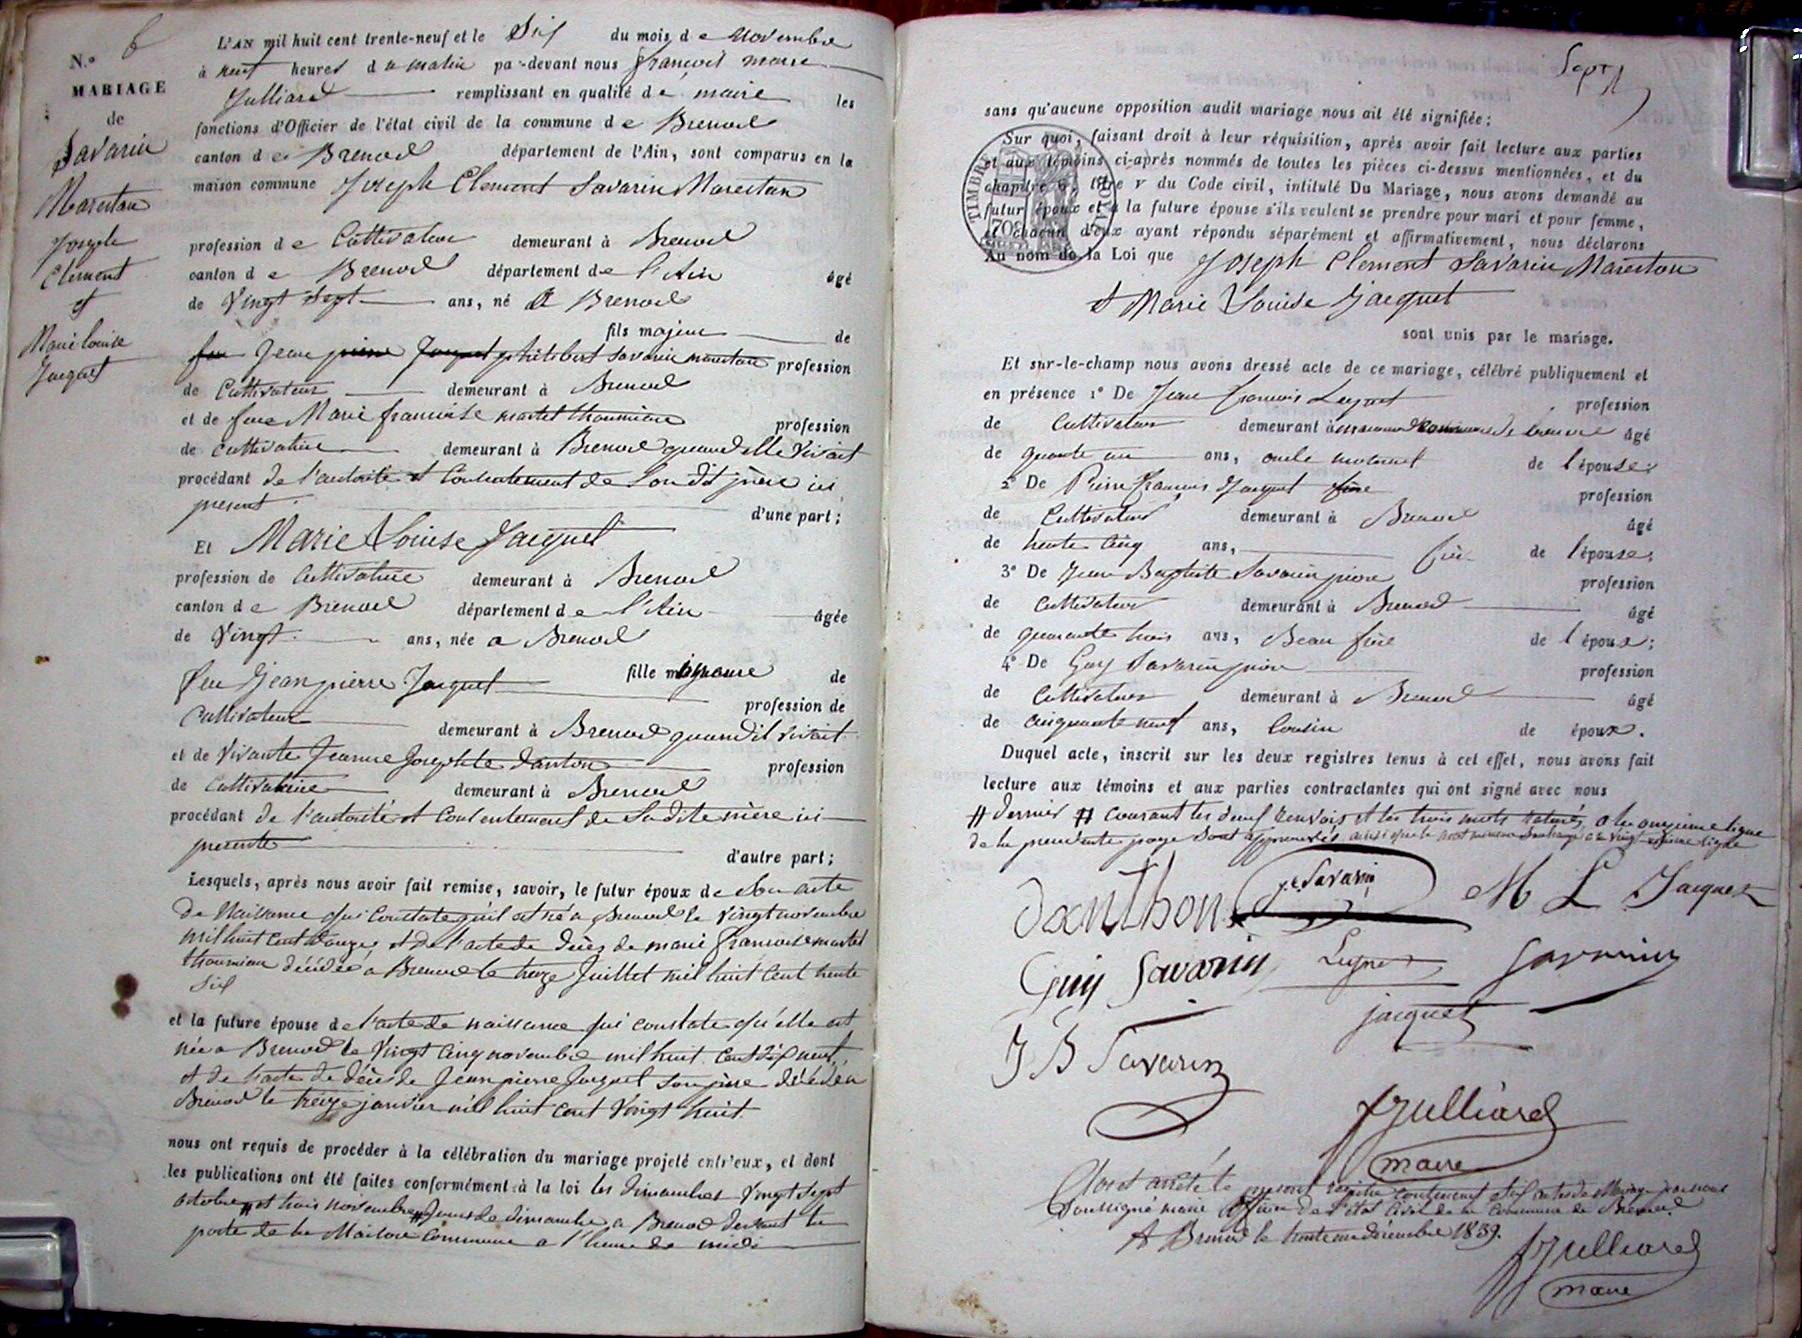 N.° 6
MARIAGE
de
Savarin
Marestan
Joseph
Clement
et
Marie louise
Jacquet
L'AN mil huit cent trente-neuf et le Six du mois de novembre
à neuf heures du matin par-devant nous françois marie
Julliard remplissant en qualité de maire les
fonctions d'Officier de l'état civil de la commune de Brenod
canton de Brenod département de l'Ain, sont comparus en la
maison commune Joseph Clement Savarin Marestan
profession de Cultivateur demeurant à Brenod
canton de Brenod département de l'Ain âgé
de Vingt Sept ans, né à Brenod
fils majeur de
feu Jean pierre Jacquet philibert savarin marestan profession
de Cultivateur demeurant à Brenod
et de feue Marie francoise martel thoumian profession
de cultivatrice demeurant à Brenod quand elle vivait
procédant de l'autorité et Contentement de Son dit père ici
present d'une part;
Et Marie Louise Jacquet
profession de Cultivatrice demeurant à Brenod
canton de Brenod département de l'Ain âgée
de Vingt ans, née a Brenod
fille mineure de
feu Jean pierre Jacquet profession de
Cultivateur demeurant à Brenod quand il vivait
et de Vivante Jeanne Josephte Danton profession
de Cultivatrice demeurant à Brenod
procédant de l'autorité et Contentement de Sa dite mère ici
presente d'autre part;
Lesquels, après nous avoir fait remise, savoir, le futur époux de Son acte
de Naissance qui Constate qu'il est né a Brenod le vingt novembre
mil huit Cent douze et de l'acte de decès de marie francoise martel
thoumian décédée a Brenod le treize Juillet mil huit Cent trente
six
et la future épouse de l'acte de naissance qui constate qu'elle est
née a Brenod le Vingt Cinq novembre mil huit Cent dix neuf,
et de l'acte de décès de Jean pierre Jacquet Son père décédé a
Brenod le treize janvier mil huit cent Vingt huit
nous ont requis de procéder à la célébration du mariage projeté entr'eux, et dont
les publications ont été faites conformément à la loi les dimanches Vingt Sept
octobre # et trois novembre # Jours de dimanche a Brenod devant la
porte de la Maison Commune a l'heure de midi
Sept
sans qu'aucune opposition audit mariage nous ait été signifiée;
TIMBRE
ROYAL
70c
Sur quoi, faisant droit à leur réquisition, après avoir fait lecture aux parties
et aux témoins ci-après nommés de toutes les pièces ci-dessus mentionnées, et du
chapitre 6, titre v du Code civil, intitulé Du Mariage, nous avons demandé au
futur époux et à la future épouse s'ils veulent se prendre pour mari et pour femme,
et chacun d'eux ayant répondu séparément et affirmativement, nous déclarons
Au nom de la Loi que Joseph Clement Savarin Marestan
et Marie Louise Jacquet
sont unis par le mariage.
Et sur-le-champ nous avons dressé acte de ce mariage, célébré publiquement et
en présence 1° De Jean françois Leynet profession
de Cultivateur demeurant à commune de âgé
de quarante un ans, oncle maternel de l'épouse;
2° De Pierre françois Jacquet frère profession
de Cultivateur demeurant à Brenod âgé
de trente Cinq ans, frère de l'épouse;
3° De Jean Baptiste Savarin pione profession
de Cultivateur demeurant à Brenod âgé
de quarante trois ans, Beau frère de l'époux;
4° De Guy Savarin pione profession
de Cultivateur demeurant à Brenod âgé
de cinquante neuf ans, Cousin de époux.
Duquel acte, inscrit sur les deux registres tenus à cet effet, nous avons fait
lecture aux témoins et aux parties contractantes qui ont signé avec nous
# dernier # courant les deux renvois et les trois mots raturés, a la onzieme ligne
de la precedente page Sont approuvés ainsi que le mot mineure surchargé a la vingt ligne
danthon
J.C Savarin
M L Jacquet
Guy Savarin
Leynet
Savarin
J B Savarin
jacquet
fJulliard
maire
Clos et arrêté le present registre contenant Six actes de Mariage par nous
Soussigné maire officier de l'état Civil de la Commune de Brenod
A Brenod le trente un décembre 1839.
fJulliard
maire